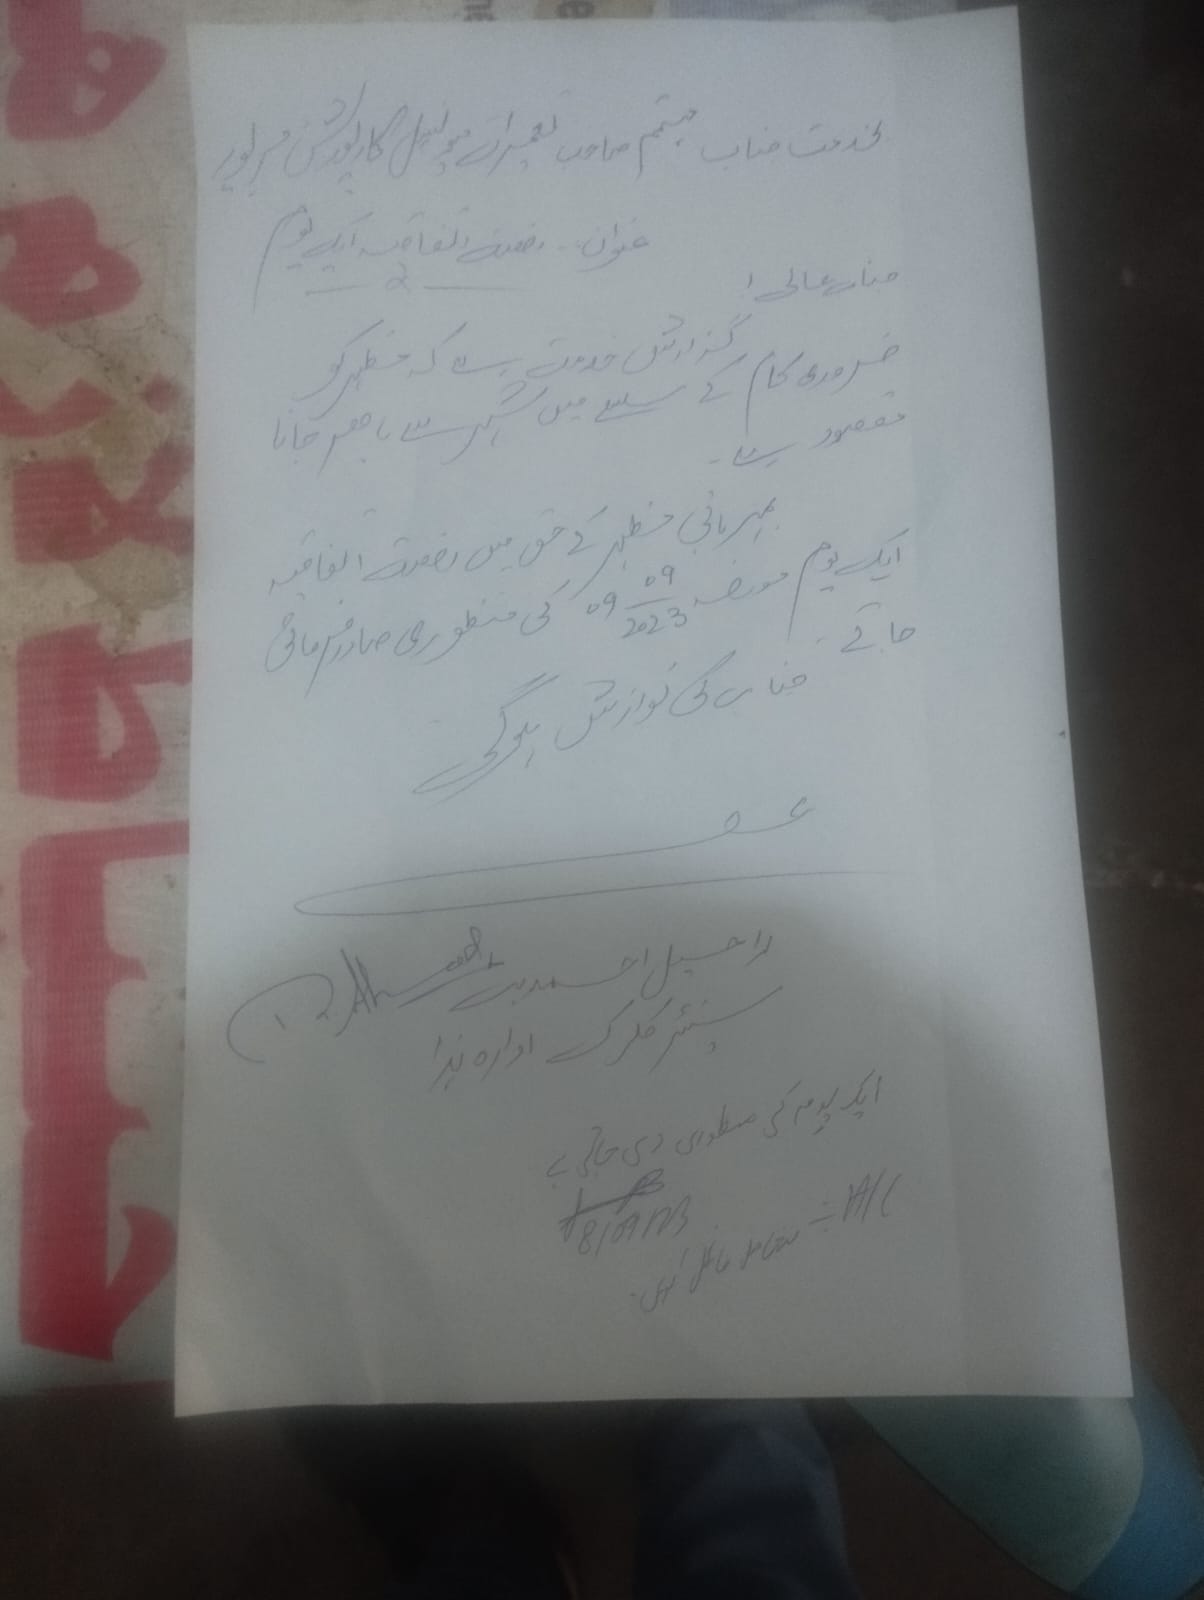 بخدمت جناب مہتمم صاحب تعمیرات میونسپل کارپوریشن میرپور
عنوان:۔ رخصت اتفاقیہ ایک یوم
جناب عالی!
گزارش خدمت ہے کہ مظہر کو
ضروری کام کے سلسلے میں شہر سے باہر جانا
مقصود ہے۔
بمہربانی مظہر کے حق میں رخصت اتفاقیہ
ایک یوم مورخہ 09 09 2023 کی منظوری صادر فرمائی
جائے۔
جناب کی نوازش ہوگی
راحیل احمد
سینئر کلرک ادارہ ہذا
ایک یوم کی منظوری دی جاتی ہے
8/09/23
A/C